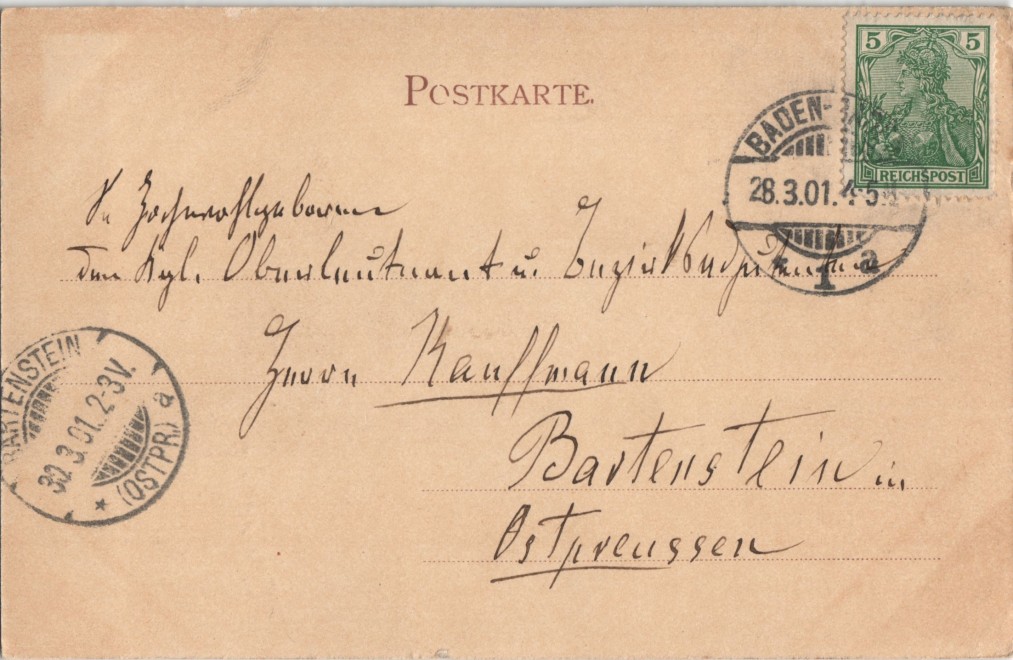 POSTKARTE.
5 5
REICHSPOST
BADEN-BA
28.3.01.4-5
* 1 a
Sr Hochwohlgeboren
dem Kgl. Oberleutnant u. Bezirksadjutanten
Herrn Kauffmann
Bartenstein in
Ostpreussen
BARTENSTEIN
30.3.01.2-3V.
* (OSTPR.) a